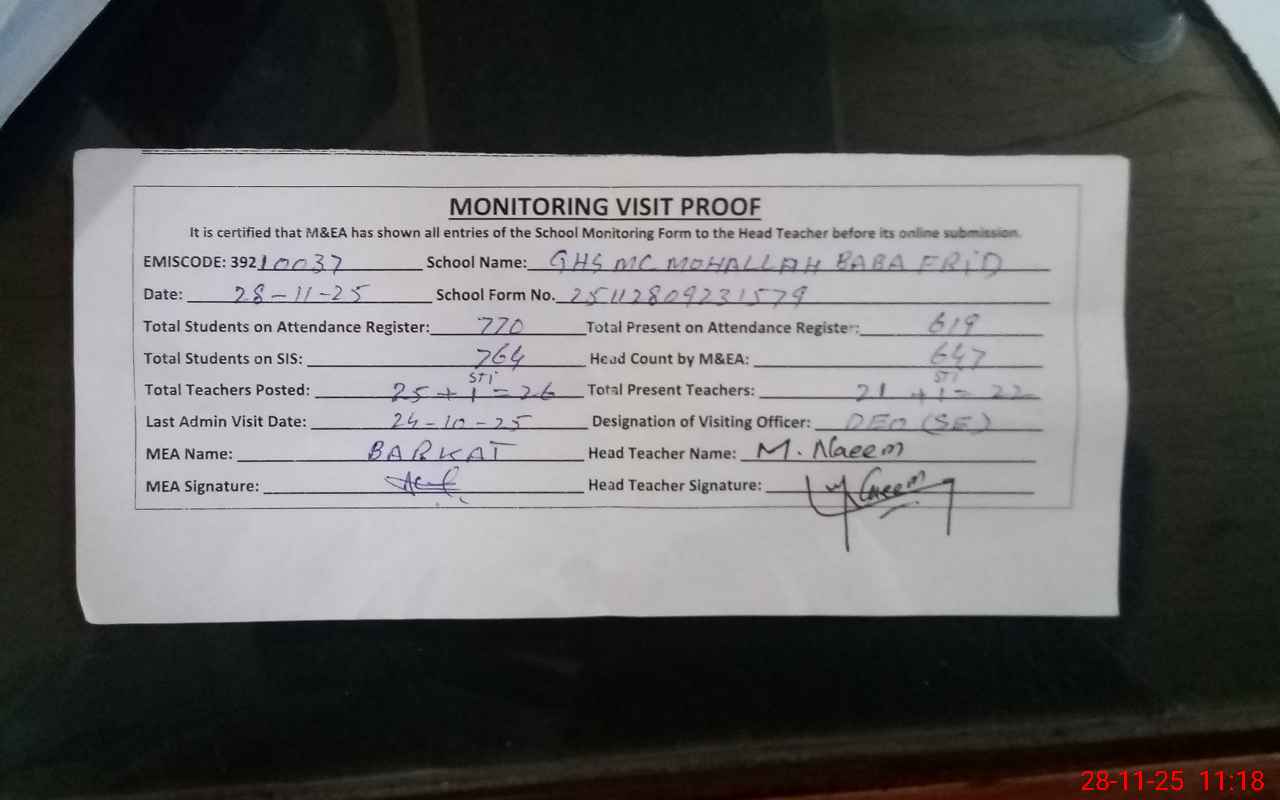 MONITORING VISIT PROOF
It is certified that M&EA has shown all entries of the School Monitoring Form to the Head Teacher before its online submission.
EMISCODE: 39210037 School Name: GHS MC MOHALLAH BABA FRID
Date: 28-11-25 School Form No. 25112809231579
Total Students on Attendance Register: 770 Total Present on Attendance Register: 619
Total Students on SIS: 764 Head Count by M&EA: 647
STI STI
Total Teachers Posted: 25 + 1 = 26 Total Present Teachers: 21 + 1 = 22
Last Admin Visit Date: 24-10-25 Designation of Visiting Officer: DEO (SE)
MEA Name: BARKAT Head Teacher Name: M. Naeem
MEA Signature: Head Teacher Signature: M Naeem
28-11-25 11:18